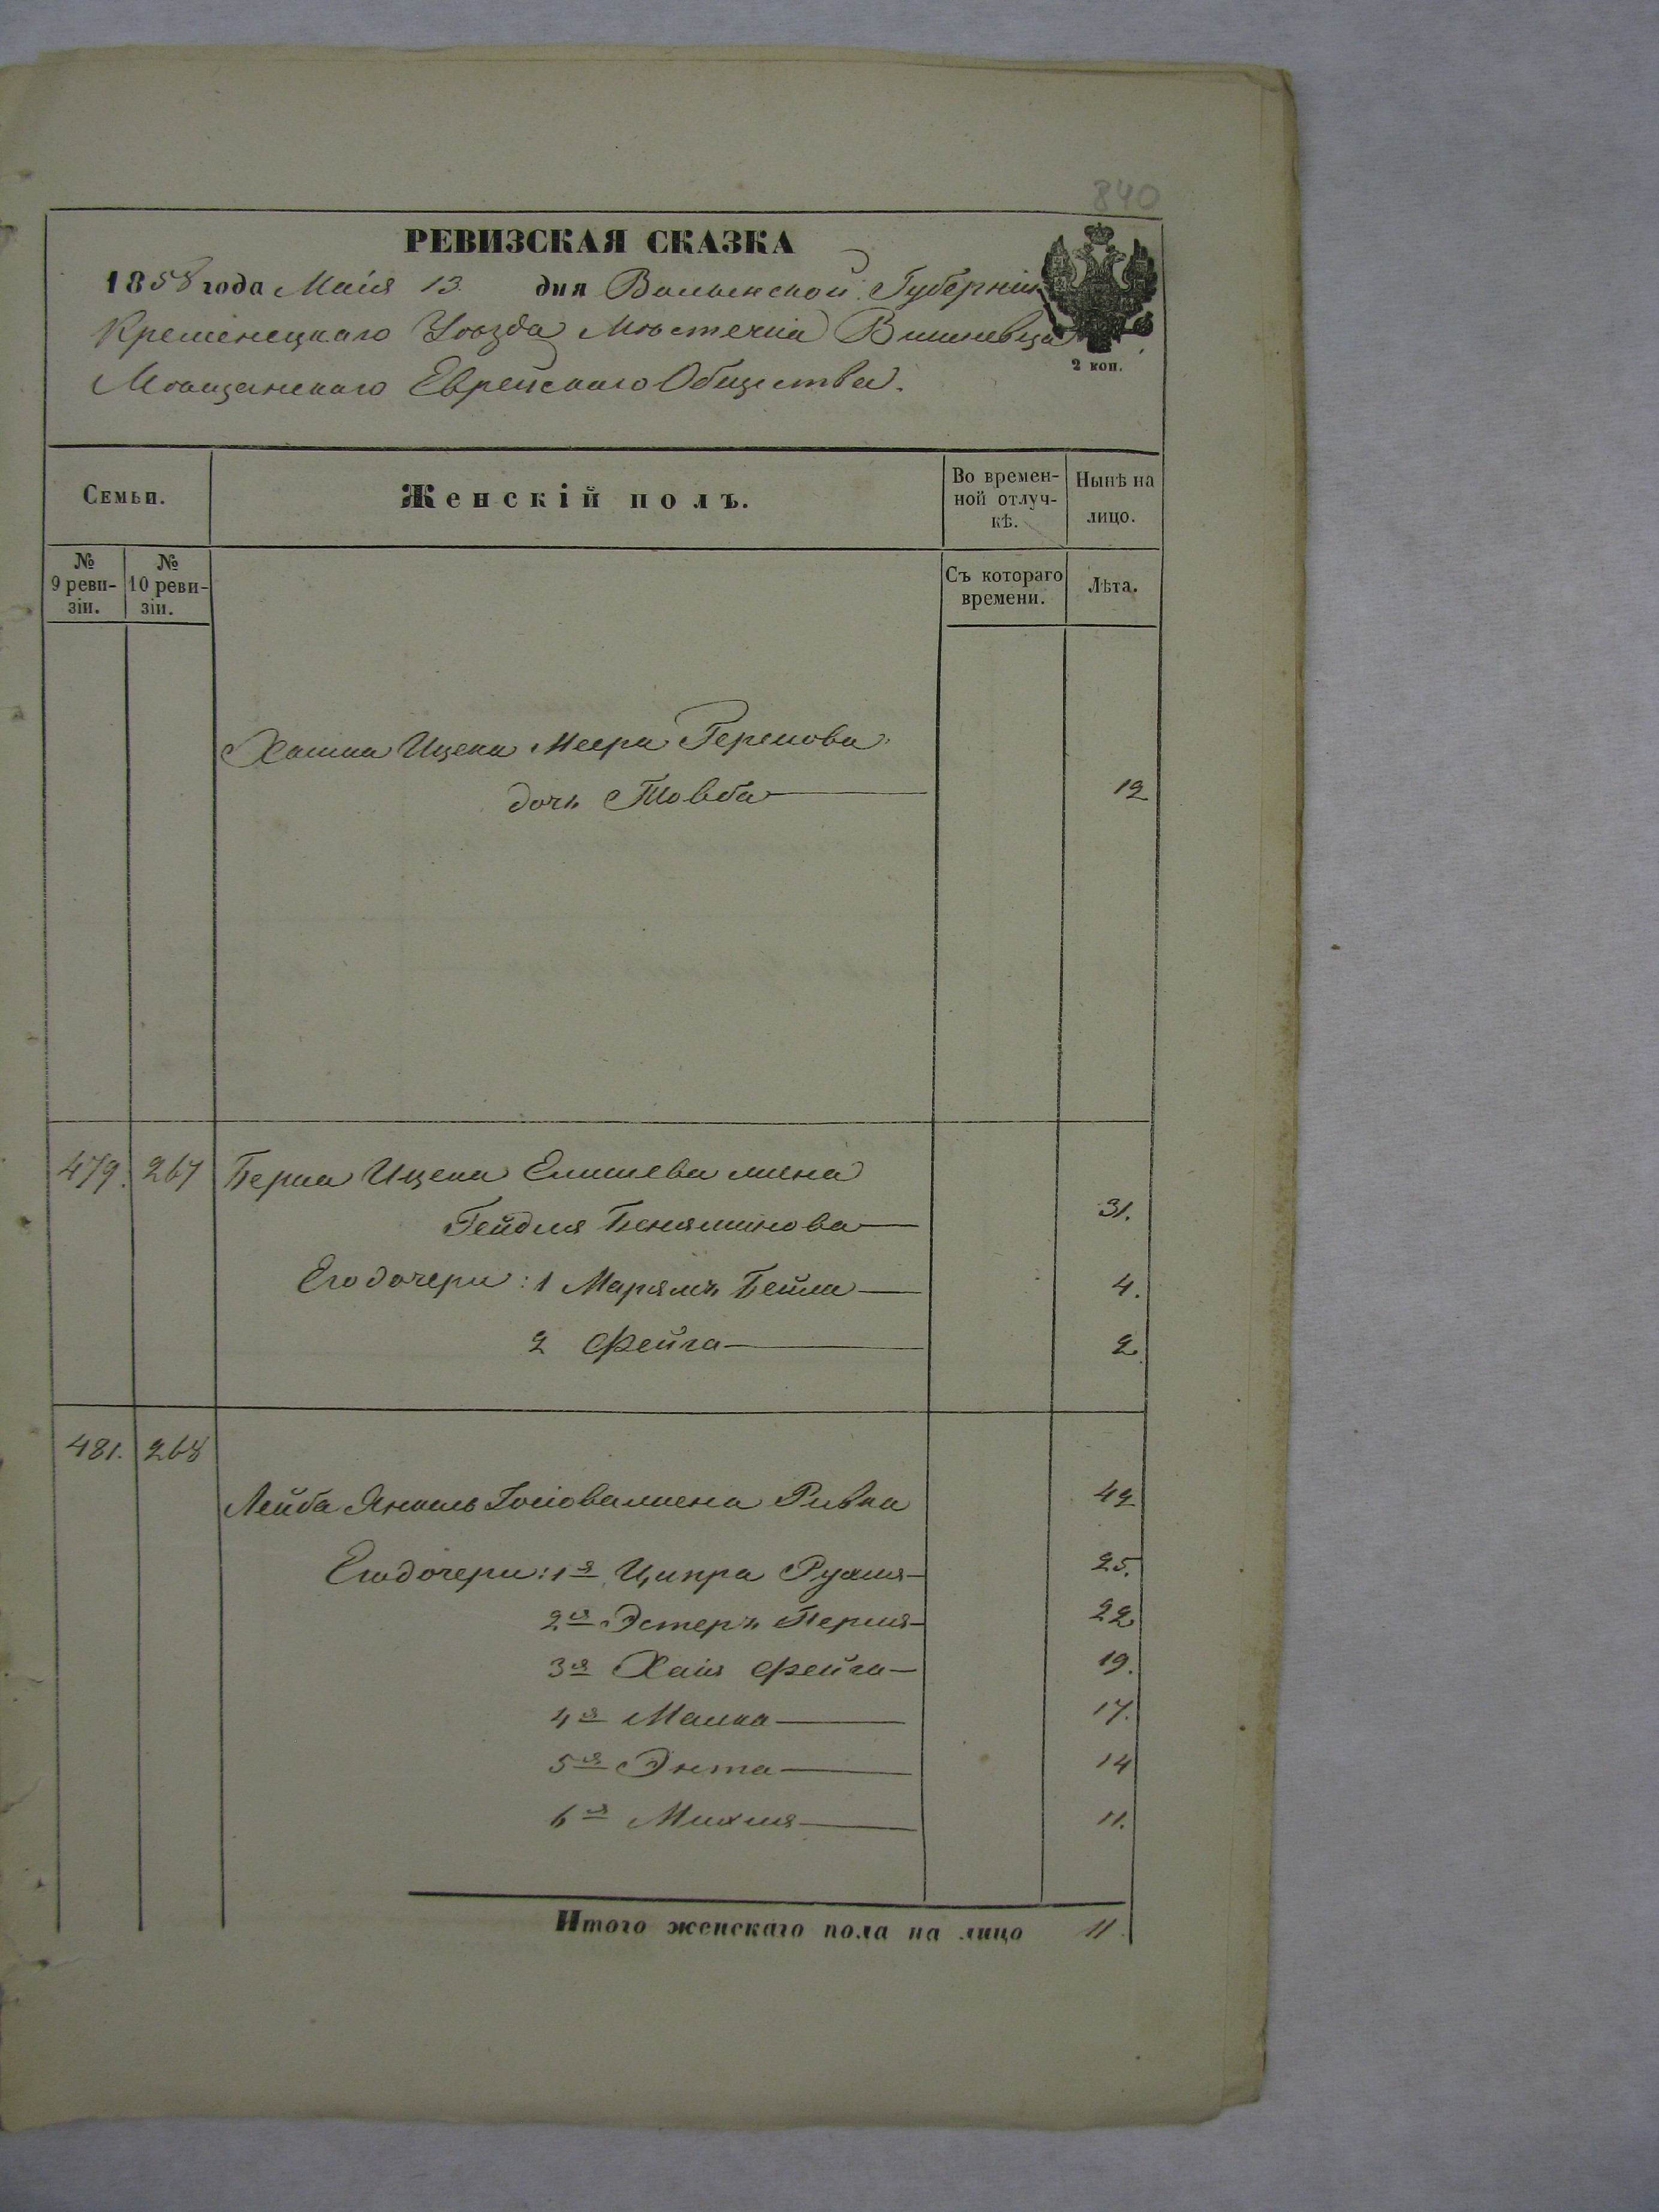 840
РЕВИЗСКАЯ СКАЗКА
1858 года Маія 13. дня Волынской Губерніи
Кременецкаго Уѣзда Мѣстечка Вишневца
Мѣщанскаго Еврейскаго Общества.
2 коп.
Семьи.
Женскій полъ.
Во времен-
ной отлуч-
кѣ.
Нынѣ на
лицо.
№
9 реви-
зіи.
№
10 реви-
зіи.
Съ котораго
времени.
Лѣта.
Ицека Меера Гершова
дочь Товба 12
479. 267 Берка Ицека жена
Гейдля Беняминова 31.
Его дочери: 1 Марямъ Бейла 4.
2 Фейга 2
481. 268
Лейба Янкель жена Ривка 42
Его дочери: 1я Ципра Рухля 25.
2я Эстеръ Перля 22
3я Хая Фейга 19.
4я Малка 17.
5я Энта 14
6я Михля 11.
Итого женскаго пола на лицо 11.